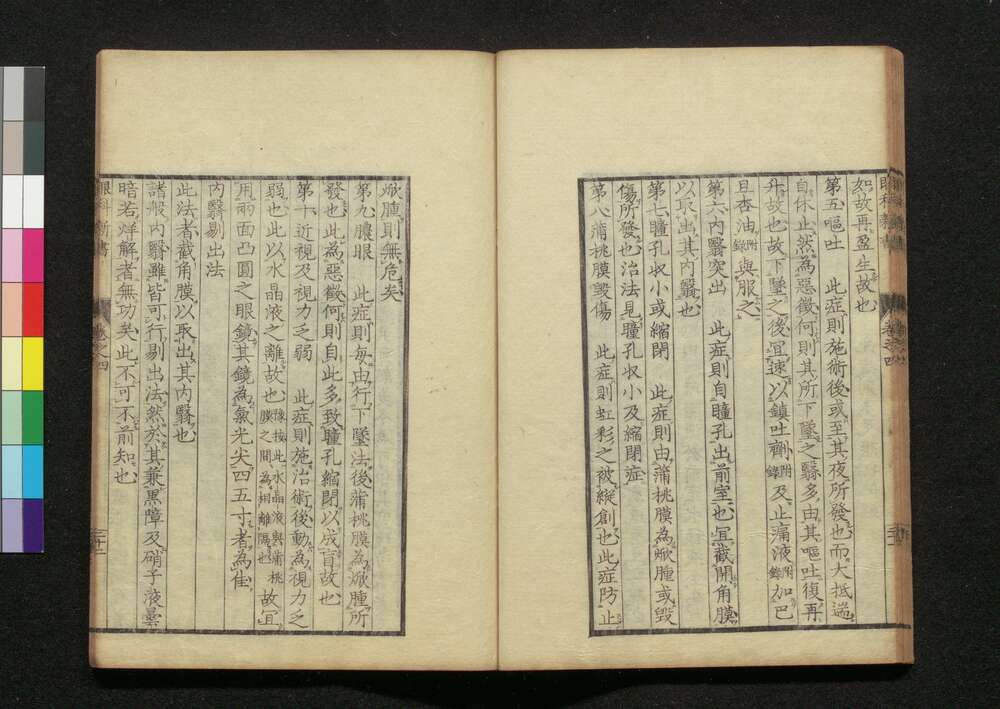 恕故再盈生故也
第五嘔吐　此症則施術後或至其夜所發也而大抵遄
自休止然為惡徵何則其所下墜之翳多由其嘔吐復再
升故也故下墜之後宜速以鎮吐劑附錄及止痛液附錄加巴
旦杏油附錄與服之
第六內翳突出　此症則自瞳孔出前室也宜截開角膜
以取出其內翳也
第七瞳孔收小或縮閉　此症則由蒲桃膜為焮腫或毀
傷所發也治法見瞳孔收小及縮閉症
第八蒲桃膜毀傷　此症則虹彩之被縱創也此症防止
焮腫則無危矣
第九膿眼　此症則每由行下墜法後蒲桃膜為焮腫所
發也此為惡徵何則自此多致瞳孔縮閉以成盲故也
第十近視及視力乏弱　此症則施治術後動為視力乏
弱也此以水晶液之離故也豫按此水晶液與蒲桃膜之間為相離隔也故宜
用兩面凸圓之眼鏡其鏡為氣光尖四五寸者為佳
內翳剔出法
此法者截角膜以取出其內翳也
諸般內翳雖皆可行剔出法然於其兼黑障及硝子液曇
暗若烊解者無功矣此不可不前知也
眼科新書　卷之四